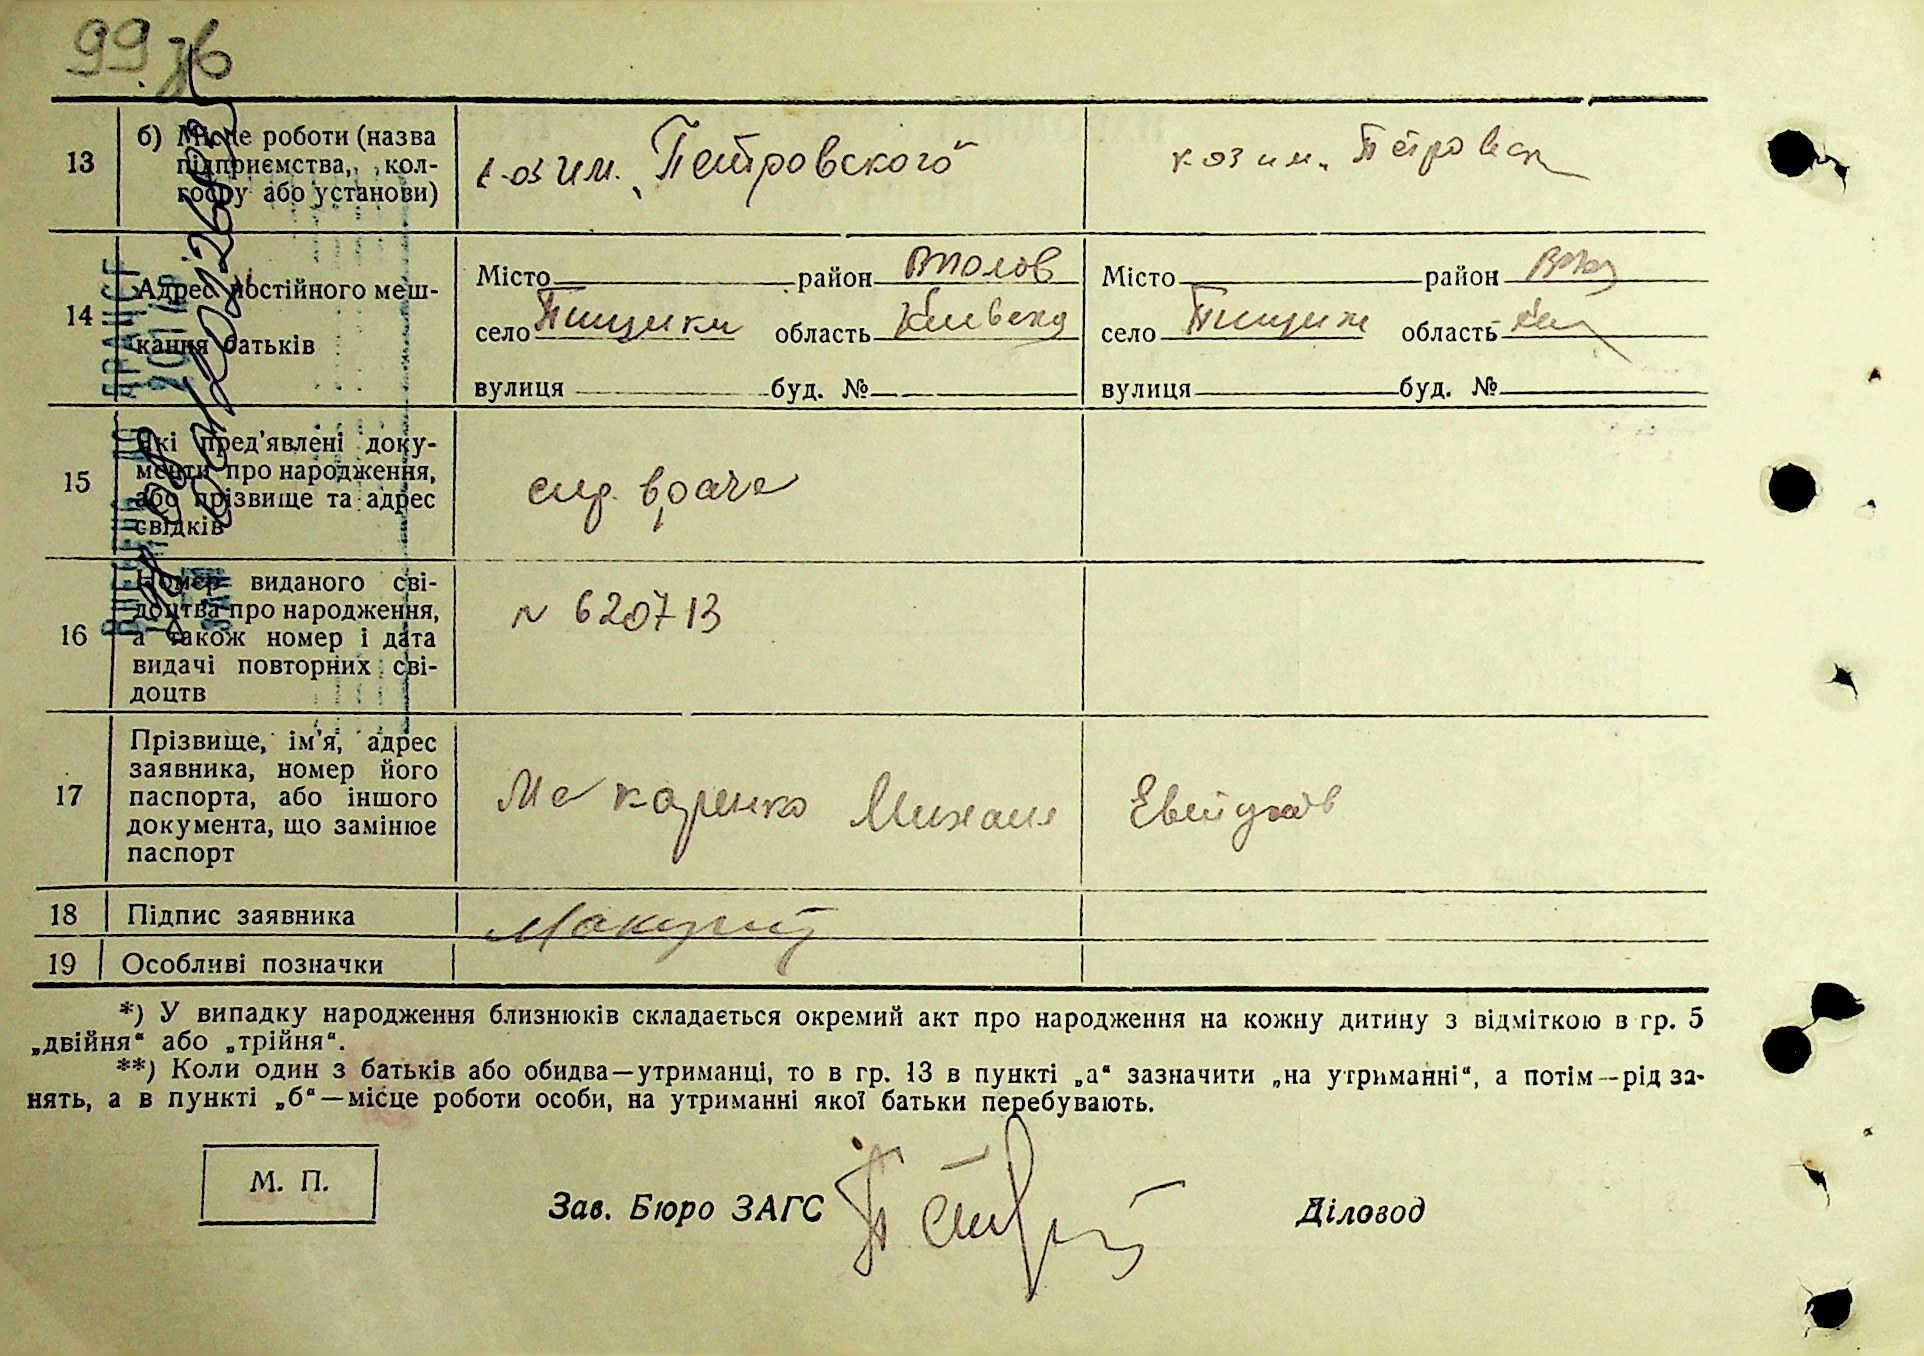 99 зв
13
б) Місце роботи (назва
підприємства, кол-
госпу або установи)
к-оз им. „Петровского"
коз им. Петровск
14
Адрес постійного меш-
кання батьків
Місто район
село Пищики область Киевска
вулиця буд. №
Місто район
село Пищик область
вулиця буд. №
15
Які пред'явлені доку-
менти про народження,
або прізвище та адрес
свідків
врача
16
Номер виданого сві-
доцтва про народження,
а також номер і дата
видачі повторних сві-
доцтв
N 620713
17
Прізвище, ім'я, адрес
заявника, номер його
паспорта, або іншого
документа, що замінює
паспорт
Макаренко Михаил
18
Підпис заявника
19
Особливі позначки
*) У випадку народження близнюків складається окремий акт про народження на кожну дитину з відміткою в гр. 5
„двійня" або „трійня".
**) Коли один з батьків або обидва—утриманці, то в гр. 13 в пункті „а" зазначити „на утриманні", а потім—рід за-
нять, а в пункті „б"—місце роботи особи, на утриманні якої батьки перебувають.
М. П.
Зав. Бюро ЗАГС
Діловод